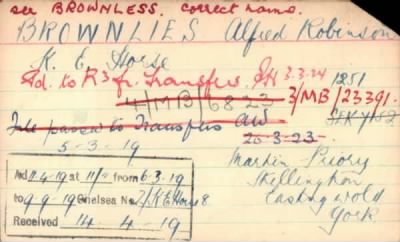 see BROWNLESS. correct name.
BROWNLIES Alfred Robinson
K. E. Horse
Ad. to R3 fr. Transfers. 3.3.24 1251
4/MB/68 23 3/MB/23391.
File passed to Transfers AW
5-3-19 20-3-23
Marton Priory
Skellington
Easingwold
York
Ad 11.4.19 at 11/- from 6.3.19
to 9.9.19 Chelsea No. 2/K.E.Horse 8
Received 14 4 19